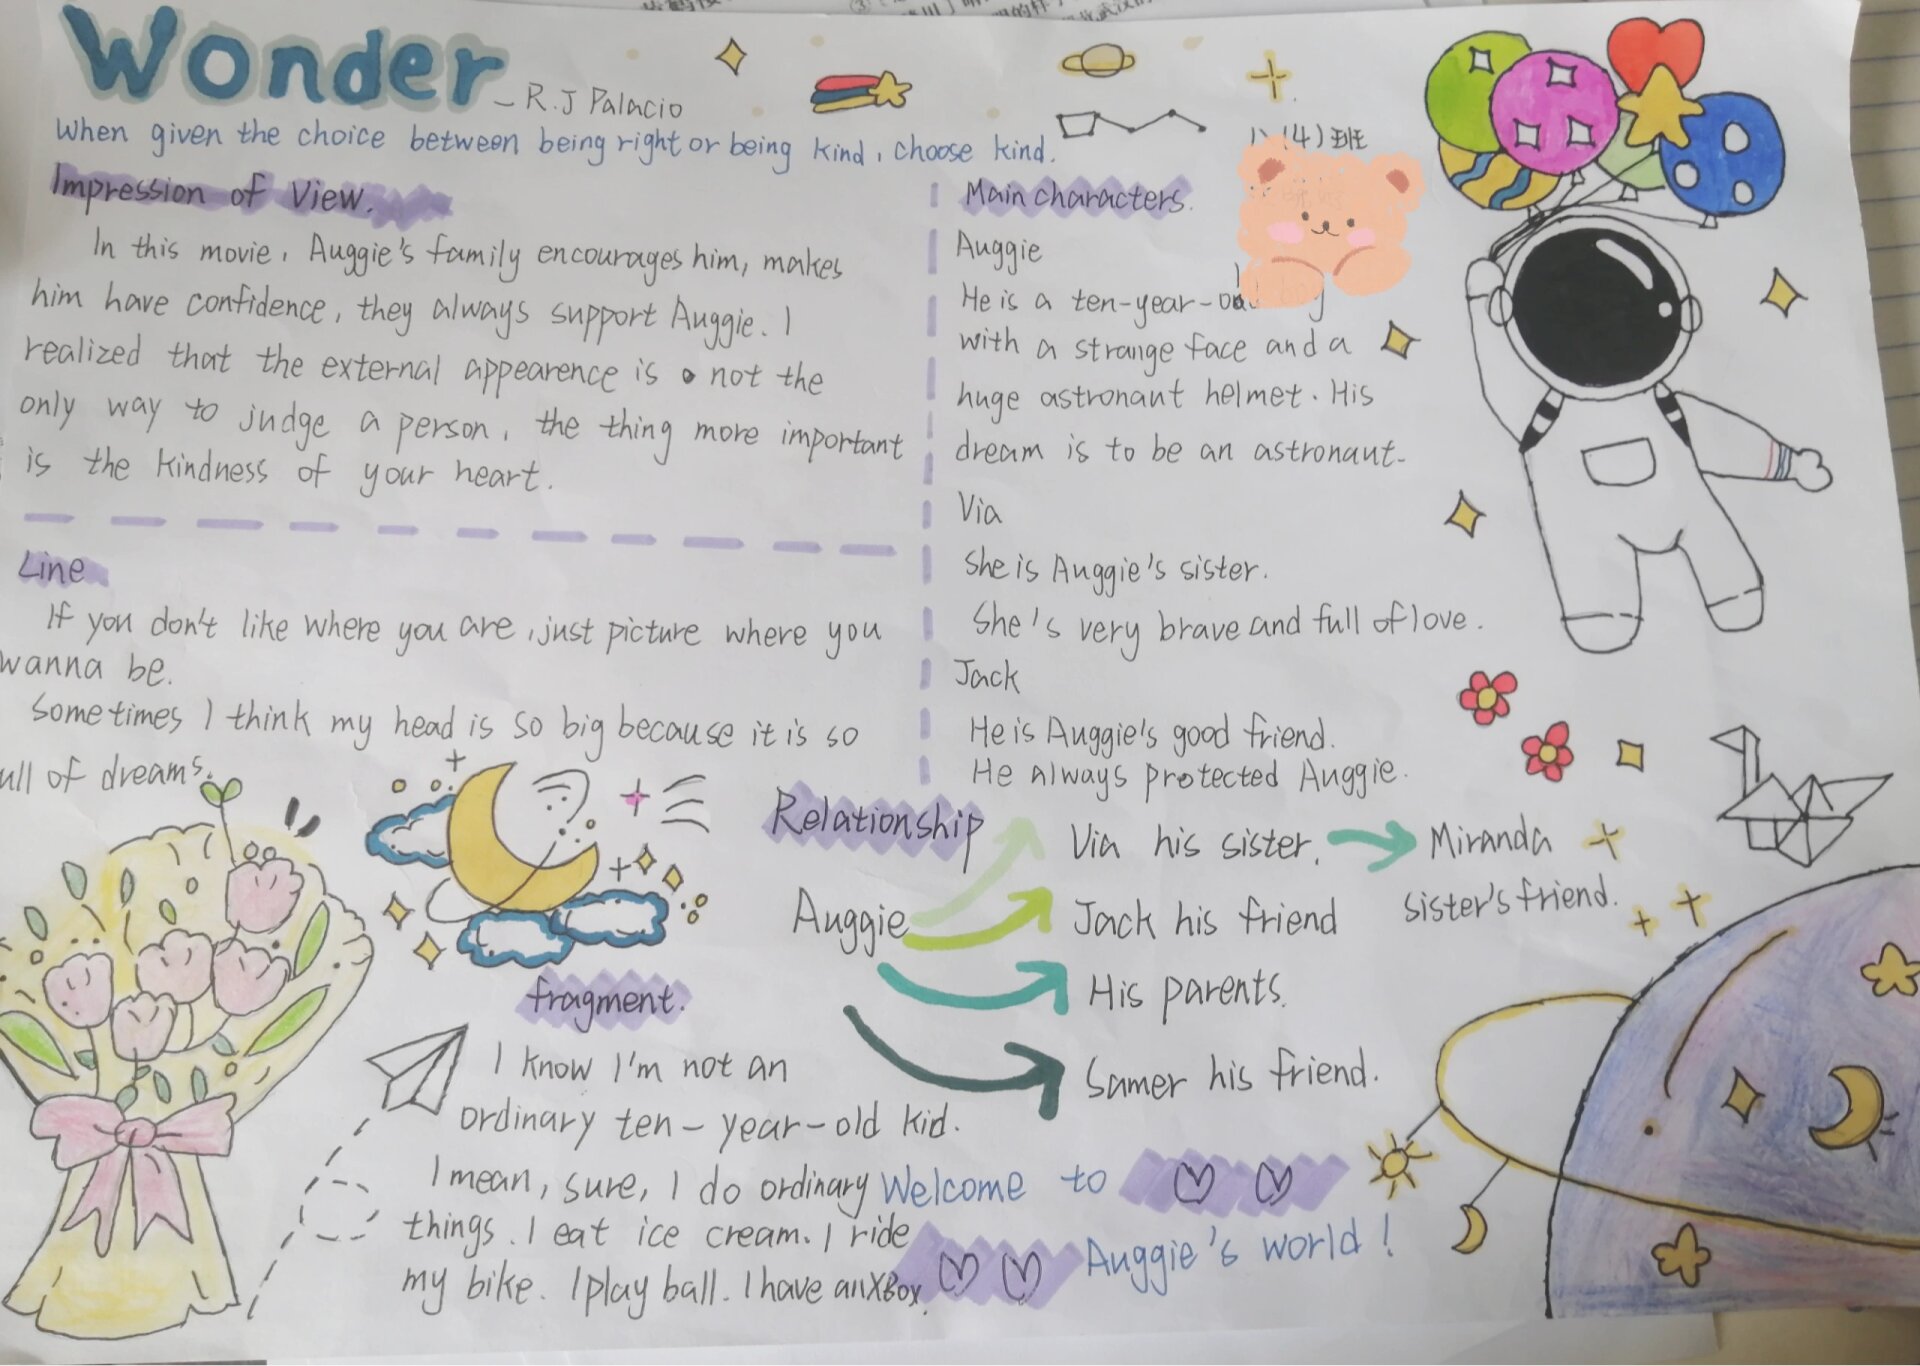 Wonder
- R.J Palacio
When given the choice between being right or being kind, choose kind.
(4)班
Impression of View.
In this movie, Auggie's family encourages him, makes
him have confidence, they always support Auggie. I
realized that the external appearence is not the
only way to judge a person, the thing more important
is the kindness of your heart.
Line
If you don't like where you are, just picture where you
wanna be.
Sometimes I think my head is so big because it is so
ull of dreams.
Main characters.
Auggie
He is a ten-year-
with a strange face and a
huge astronaut helmet. His
dream is to be an astronaut.
Via
She is Auggie's sister.
She's very brave and full of love.
Jack
He is Auggie's good friend.
He always protected Auggie.
Relationship
Auggie
Via his sister.
Miranda
sister's friend.
Jack his friend
His parents.
Samer his friend.
fragment.
I know I'm not an
ordinary ten-year-old kid.
I mean, sure, I do ordinary
things. I eat ice cream. I ride
my bike. I play ball. I have an XBox.
Welcome to
Auggie's world!